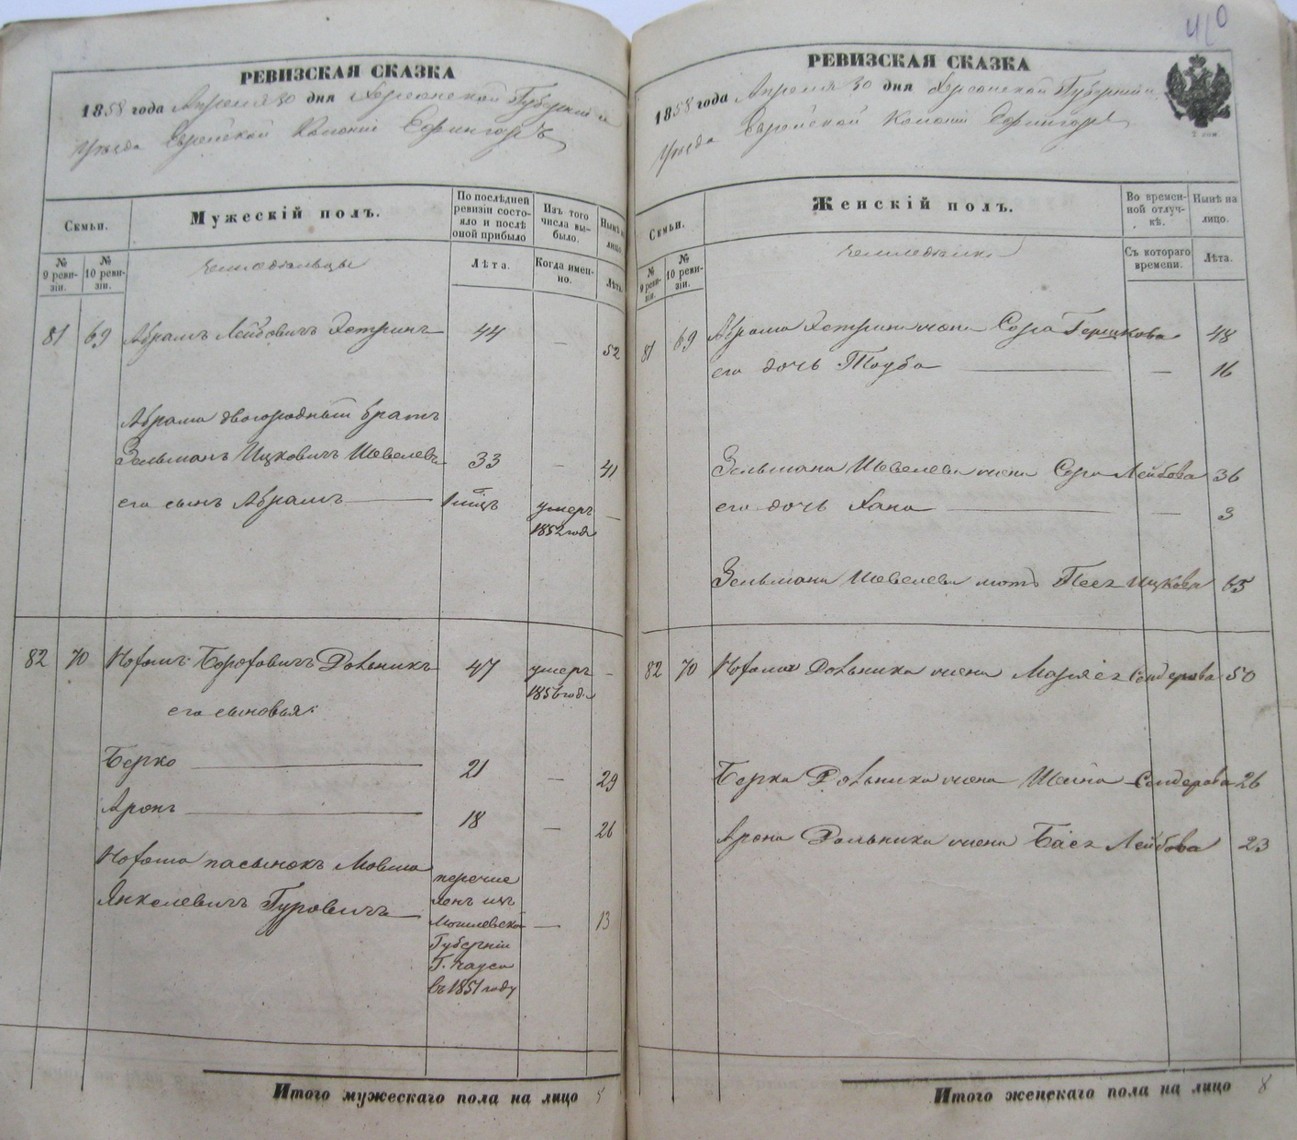 РЕВИЗСКАЯ СКАЗКА
1858 года Апреля 30 дня Херсонской Губернии и
Уезда Еврейской Колонии
Семьи.
Мужескій полъ.
По послѣдней ревизіи состояло и послѣ оной прибыло
Изъ того числа выбыло.
Нынѣ на лицо.
№ 9 ревизіи.
№ 10 ревизіи.
земледѣльцы
Лѣта.
Когда именно.
Лѣта.
81 69 Абрамъ Лейбовичъ Хотринъ 44 — 52
Абрама двоюродный братъ
Зельманъ Ицковичъ Шевелевъ 33 — 41
его сынъ Абрамъ — умеръ —
1852 года
82 70 Нохомъ Борохович Дольникъ 47 умеръ —
1856 год.
его сыновья:
Берко — 21 — 29
Аронъ — 18 — 26
Нохома пасынокъ Мовша
Янкелевичъ Гуровичъ — 13
перечис
ленъ изъ
Могилевской
Губерніи
въ 1851 году
Итого мужескаго пола на лицо 5
410
РЕВИЗСКАЯ СКАЗКА
1858 года Апреля 30 дня Херсонской Губерніи и
Уезда Еврейской Колоніи
Семьи.
Женскій полъ.
Во временной отлучкѣ.
Нынѣ на лицо.
№ 9 ревизіи.
№ 10 ревизіи.
Съ котораго времени.
Лѣта.
81 69 Абрама Хотрина жена Сора Гершкова 48
его дочь Тауба — — 16
Зельмана Шевелева жена Сора Лейбова 36
его дочь Хана — — 3
Зельмана Шевелева мать Песя Ицкова 65
82 70 Нохома Дольника жена Маряся Сендерова 50
Берка Дольника жена Шейна Сендерова 26
Арона Дольника жена Бася Лейбова 23
Итого женскаго пола на лицо 8